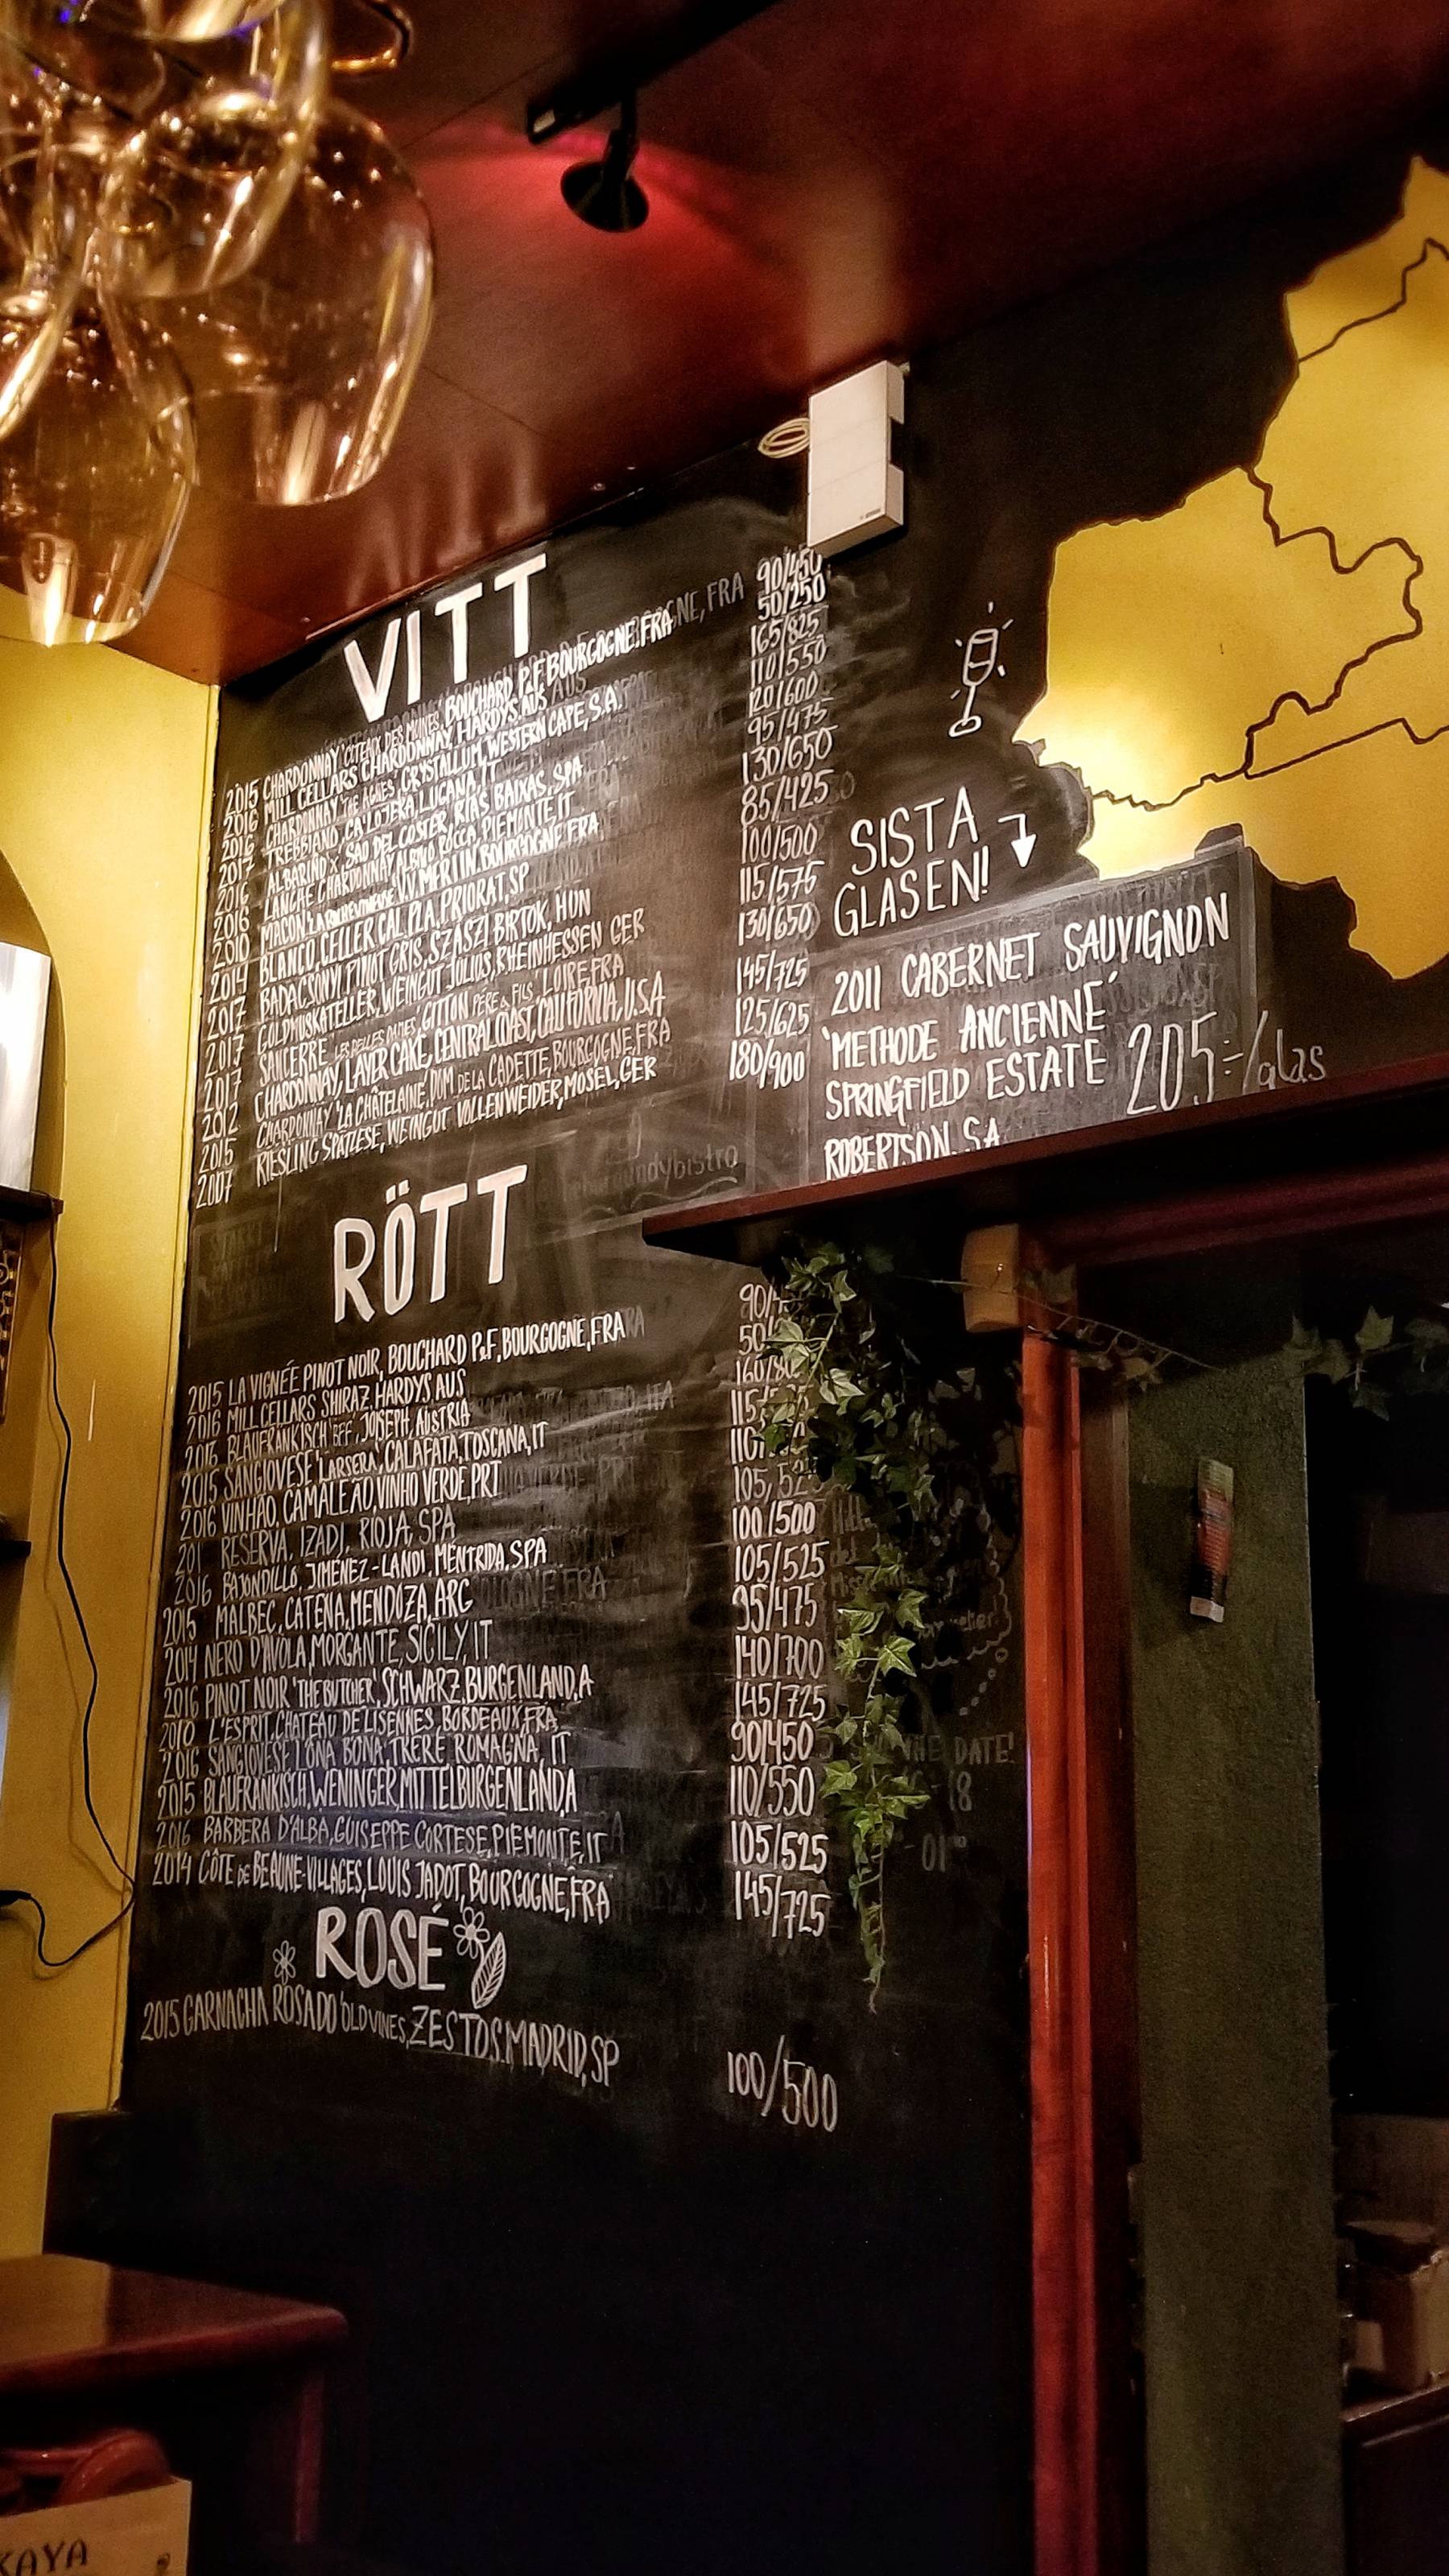 VITT
2015 CHARDONNAY 'COTEAUX DES MOINES', BOUCHARD P.F BOURGOGNE, FRA 90/450
2016 MILL CELLARS CHARDONNAY HARDYS AUS 50/250
2016 CHARDONNAY 'THE AGNES', CRYSTALLUM, WESTERN CAPE, S.A. 165/825
2017 TREBBIANO, CA'LOJERA, LUGANA, IT 110/550
2016 ALBARINO X, SAO DEL COSTER, RIAS BAIXAS, SPA 120/600
2016 LANGHE CHARDONNAY, ALBINO ROCCA, PIEMONTE, IT 95/475
2010 MACON BOURGOGNE FRA 130/650
2014 BLANCO, CELLER CAL PLA, PRIORAT, SP 85/425
2017 BADACSONYI PINOT GRIS, SZASZI BIRTOK, HUN 100/500
2017 GOLDMUSKATELLER, WEINGUT JULIUS, RHEINHESSEN GER 115/575
2017 SANCERRE GITTON PÈRE & FILS, LOIRE, FRA 130/650
2012 CHARDONNAY, LAYER CAKE, CENTRAL COAST, CALIFORNIA, U.S.A 145/725
2015 CHARDONNAY 'LA CHÂTELAINE', DOM DE LA CADETTE, BOURGOGNE, FRA 125/625
2007 RIESLING SPÄTLESE, WEINGUT VOLLENWEIDER, MOSEL, GER 180/900
SISTA
GLASEN!
2011 CABERNET SAUVIGNON
'METHODE ANCIENNE'
SPRINGFIELD ESTATE 205:-/glas
ROBERTSON. SA
RÖTT
2015 LA VIGNÉE PINOT NOIR, BOUCHARD P&F, BOURGOGNE, FRA 90/4
2016 MILL CELLARS SHIRAZ, HARDYS AUS 50/
2016 BLAUFRÄNKISCH BFF, JOSEPH, AUSTRIA 160/80
2015 SANGIOVESE 'LARSERA', CALAFATA, TOSCANA, IT 115/
2016 VINHÃO, CAMALEAO, VINHO VERDE, PRT 110/
201 RESERVA, IZADI, RIOJA, SPA 105, 52
2016 BAJONDILLO, JIMÉNEZ-LANDI, MÉNTRIDA, SPA 100/500
2015 MALBEC, CATENA, MENDOZA, ARG 105/525
2014 NERO D'AVOLA, MORGANTE, SICILY, IT 95/475
2016 PINOT NOIR 'THE BUTCHER', SCHWARZ, BURGENLAND, A 140/700
2010 L'ESPRIT, CHATEAU DE LISENNES BORDEAUX, FRA 145/725
2016 SANGIOVESE LONA BONA, TRERE ROMAGNA, IT 90/450
2015 BLAUFRÄNKISCH, WENINGER, MITTELBURGENLAND, A 110/550
2016 BARBERA D'ALBA, GUISEPPE CORTESE, PIEMONTE, IT 105/525
2014 CÔTE DE BEAUNE-VILLAGES, LOUIS JADOT, BOURGOGNE, FRA 145/725
ROSÉ
2015 GARNACHA ROSADO 'OLD VINES', ZESTOS, MADRID, SP 100/500
KAYA